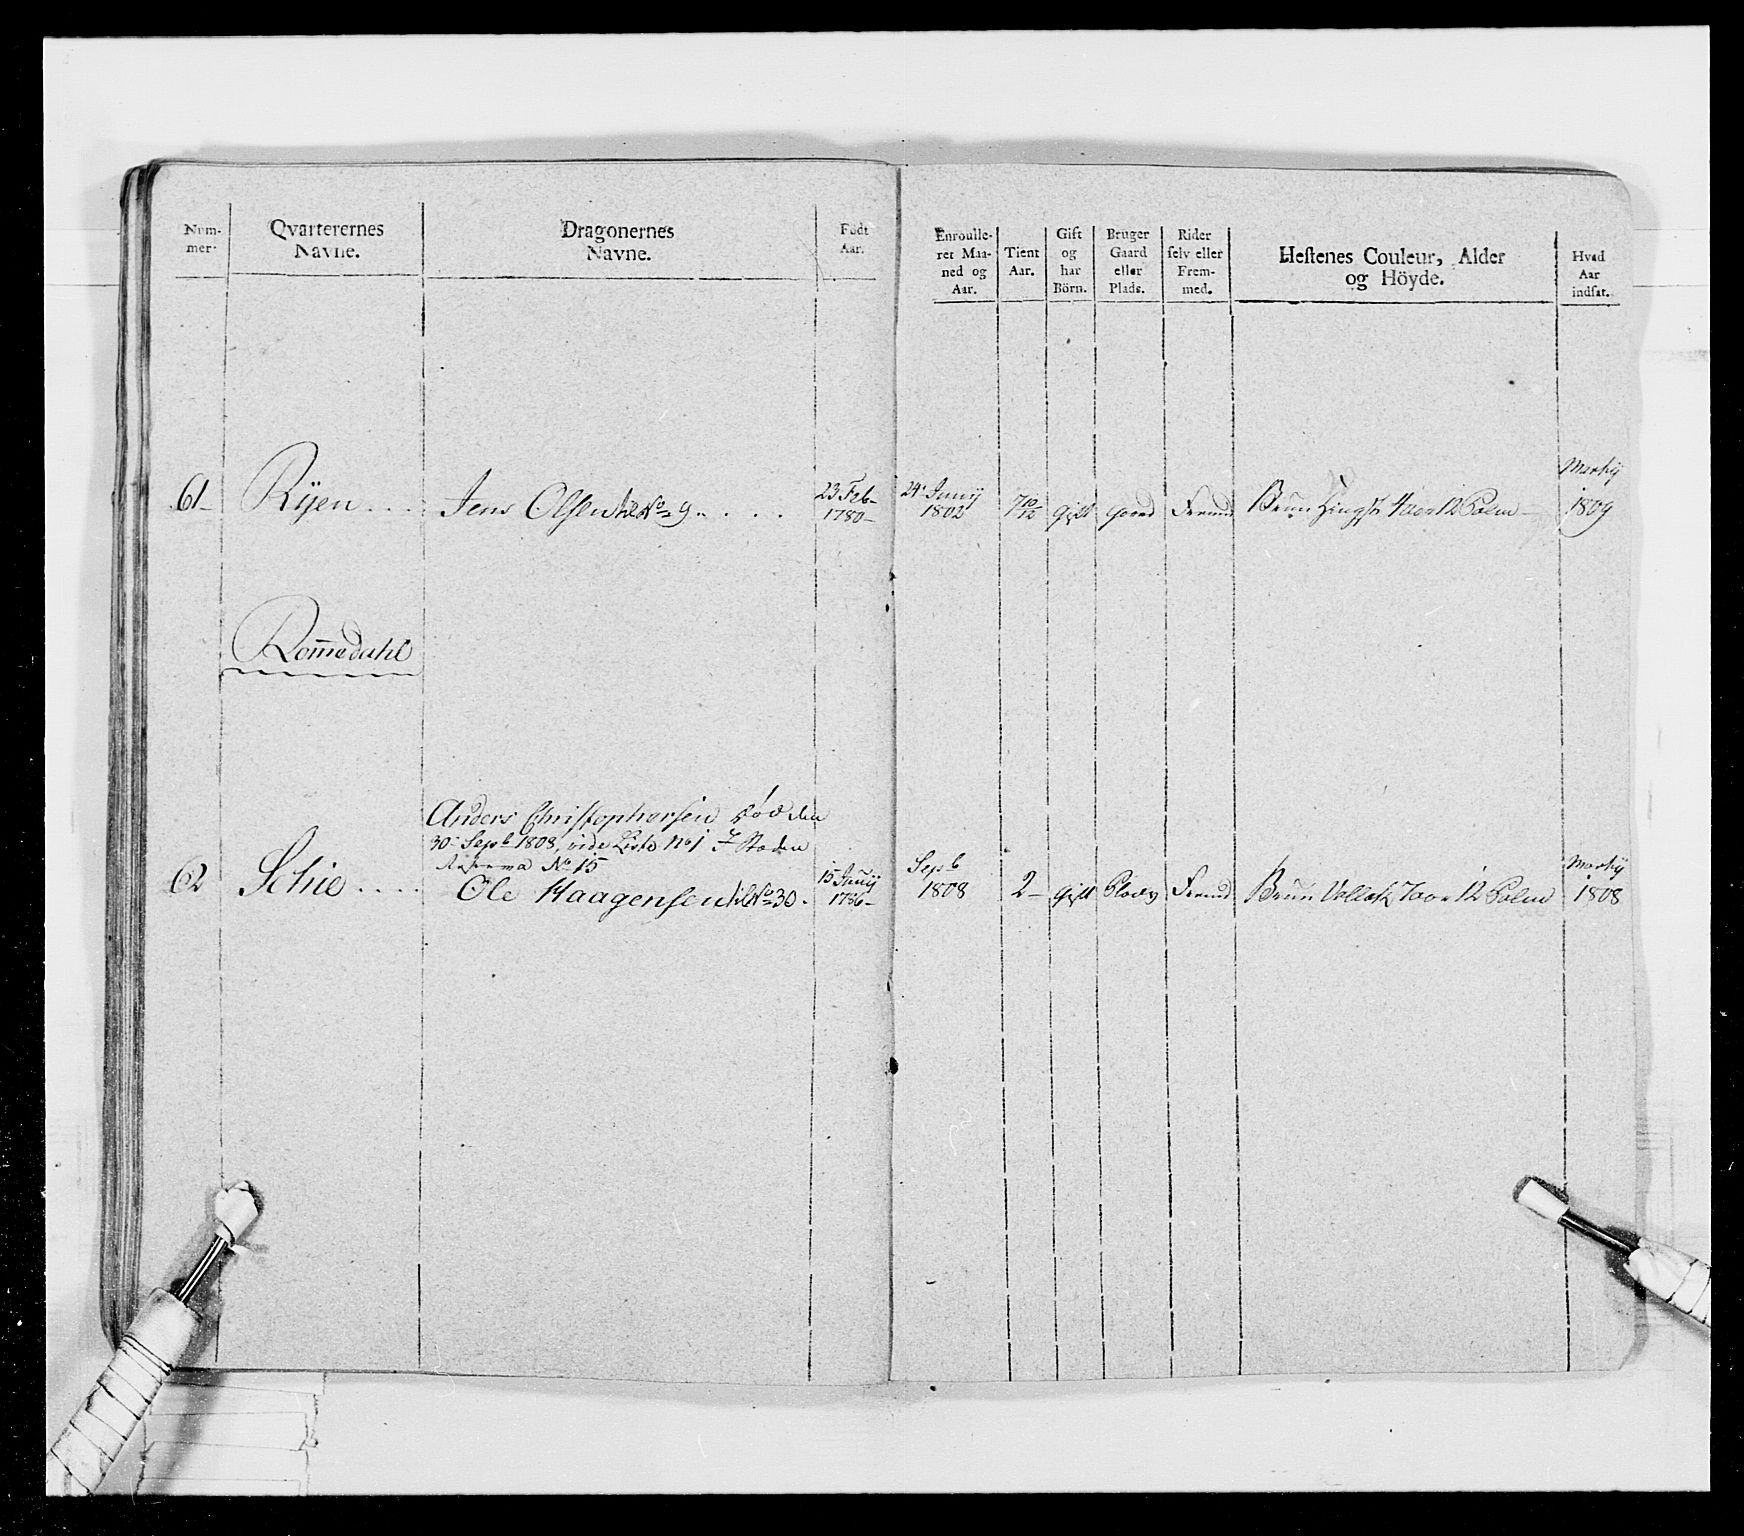 Num-
mer.
Qvarterernes
Navne.
Dragonernes
Navne.
Födt
Aar.
Enroulle-
ret Maa-
ned og
Aar.
Tient
Aar.
Gift
og
har
Börn.
Bruger
Gaard
eller
Plads.
Rider
selv eller
Frem-
med.
Hestenes Couleur, Alder
og Höyde.
Hvad
Aar
indsat.
61- Ryen . . . . Jens Olsen No 9 . . . . .
23 Feb-
1780-
24. Junij
1802
7 10/12 gift Gaard Fremd Brun Hingst 4 aar 12 Palm -
Martij
1809
Rom̅edahl
Anders Christophersen död den
30. Sepb 1808, vide Liste No 1
No 15
62 Schie . . . . Ole Haagensen No 30 .
15 Junij
1786-
Sepb
1808
2- gift Plads Fremd Brun Vallak 7 aar 12 Palm
Martij
1808